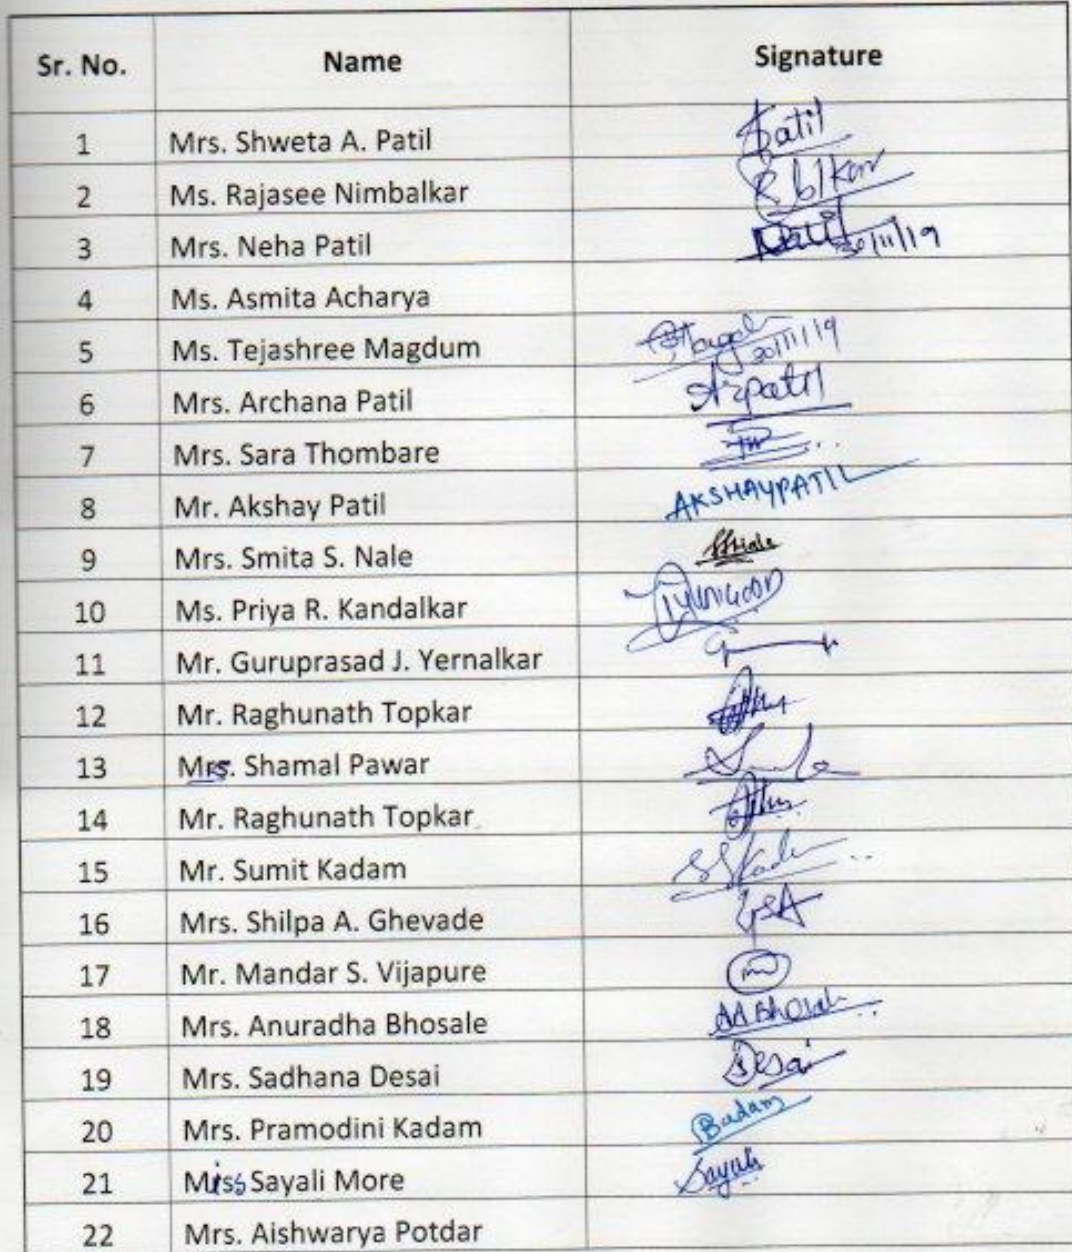 Sr. No. Name Signature
1 Mrs. Shweta A. Patil Patil
2 Ms. Rajasee Nimbalkar
3 Mrs. Neha Patil Patil 30/11/19
4 Ms. Asmita Acharya
5 Ms. Tejashree Magdum 30/11/19
6 Mrs. Archana Patil Arpatil
7 Mrs. Sara Thombare
8 Mr. Akshay Patil AKSHAYPATIL
9 Mrs. Smita S. Nale
10 Ms. Priya R. Kandalkar
11 Mr. Guruprasad J. Yernalkar
12 Mr. Raghunath Topkar
13 Mrs. Shamal Pawar
14 Mr. Raghunath Topkar
15 Mr. Sumit Kadam
16 Mrs. Shilpa A. Ghevade
17 Mr. Mandar S. Vijapure
18 Mrs. Anuradha Bhosale AABhosale
19 Mrs. Sadhana Desai Desai
20 Mrs. Pramodini Kadam
21 Miss Sayali More Sayali
22 Mrs. Aishwarya Potdar